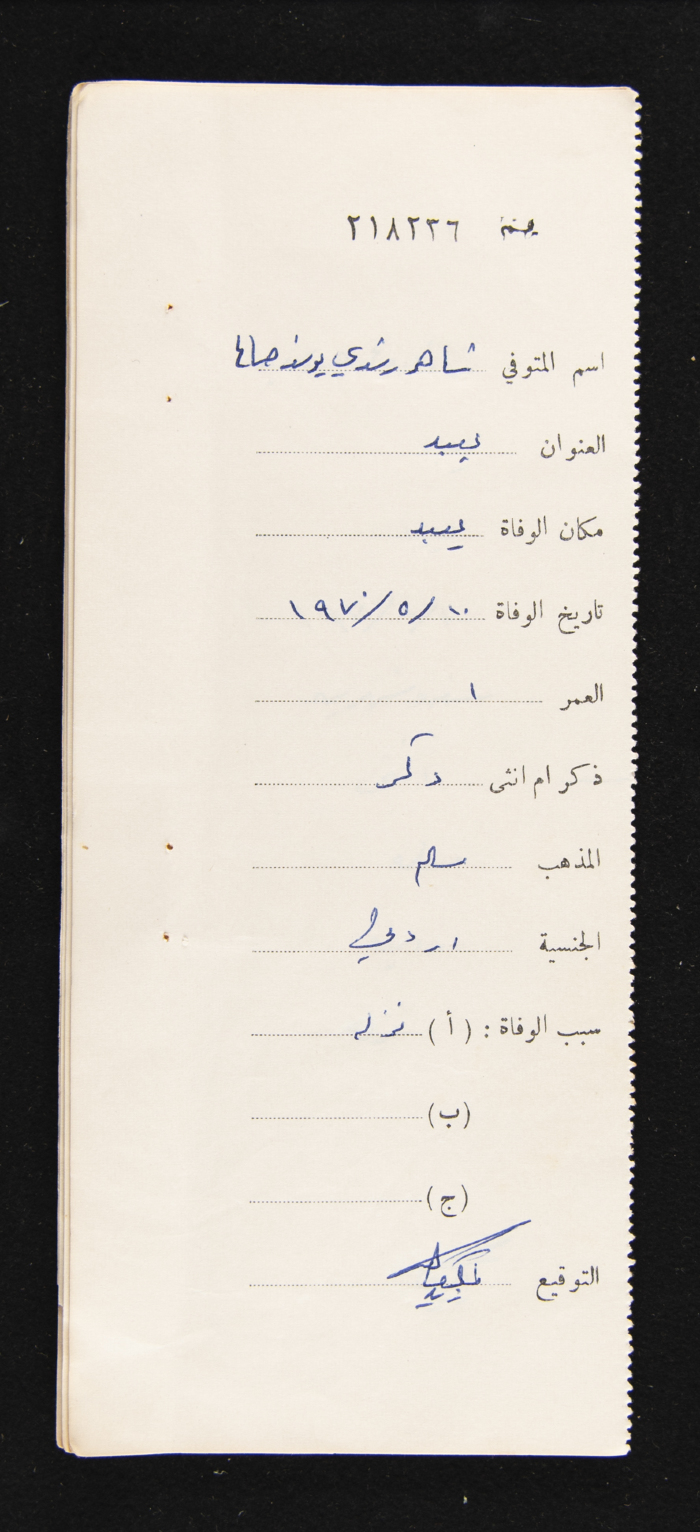 ٢١٨٢٣٦
اسم المتوفي شاهر رشدي
العنوان يعبد
مكان الوفاة يعبد
تاريخ الوفاة ١٠/٥/١٩٧٠
العمر ١
ذكر ام انثى ذكر
المذهب مسلم
الجنسية اردني
سبب الوفاة : ( أ ) نزله
(ب)
(ج)
التوقيع